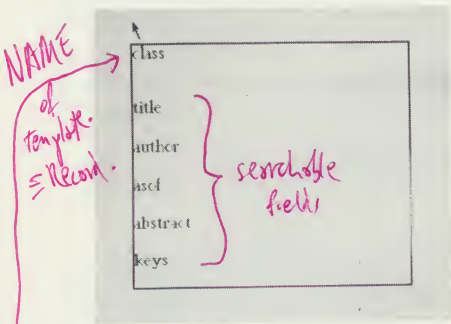 NAME
of
template.
≡ Record.
class
title
author
asof
abstract
keys
searchable
fields